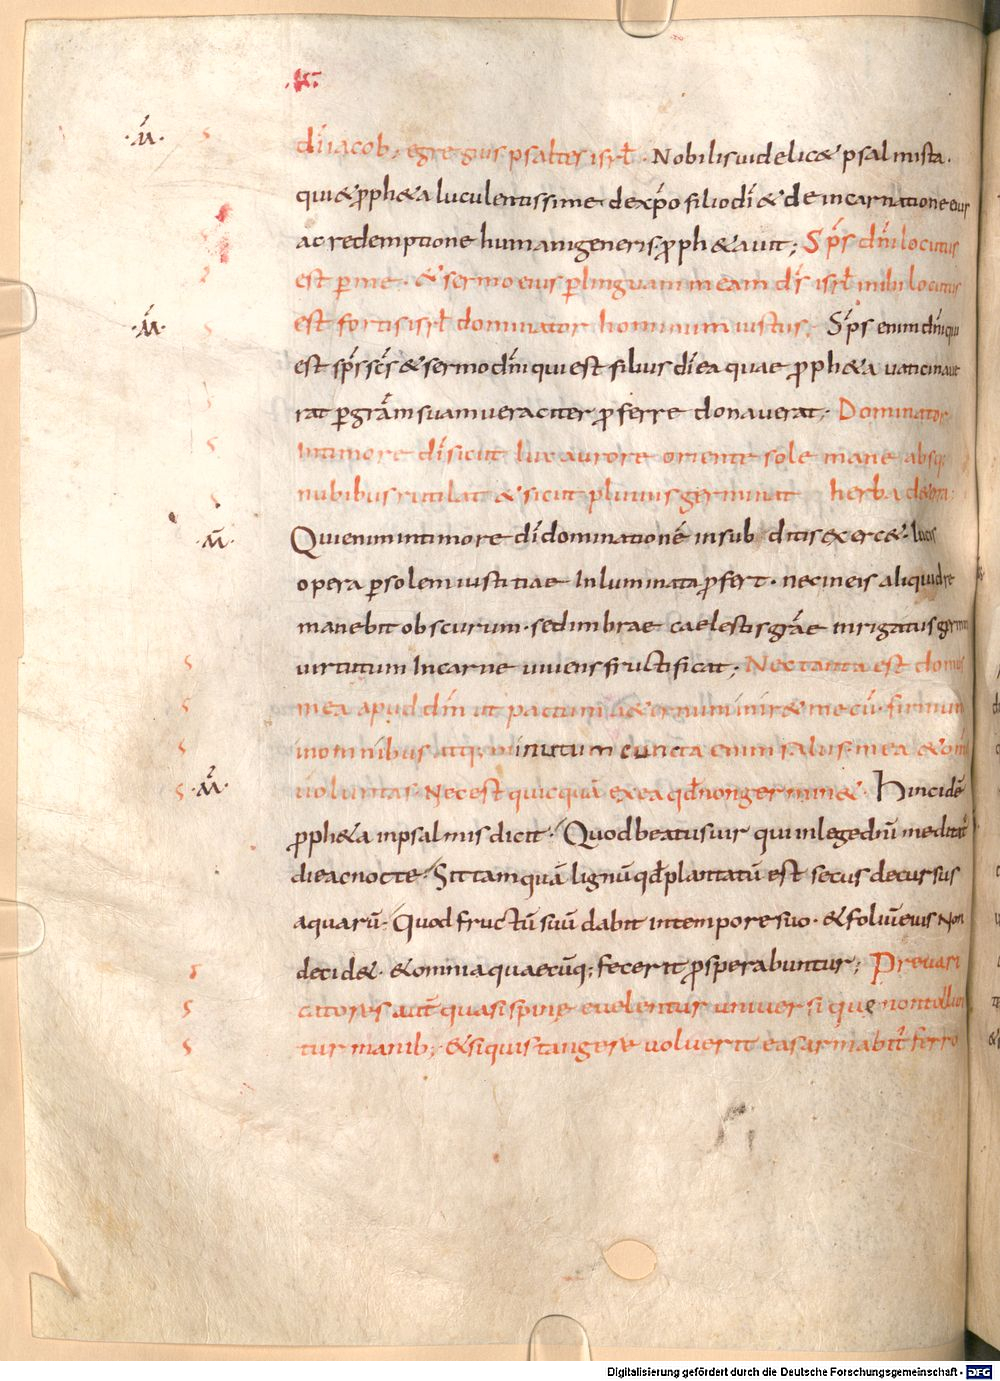 ·M̄·
dī iacob; egregius psaltes isrł. Nobilis uidelic& psalmista.
qui & ꝓph&a luculentissime de xp̄o filio dī & de incarnatione eius
ac redemptione humani generis ꝓph&auit; Sp̄s dn̄i locutus
est ꝑ me. & sermo eius ꝑ linguam meam ds̄ isrł mihi locutus
·M̄· est fortis isrł dominator hominum iustus; Sp̄s enim dn̄i qui
est sp̄s sc̄s & sermo dn̄i qui est filius dī ea quae ꝓph&a uaticinaut
rat ꝑ grām suam ueraciter ꝓferre donauerat; Dominator
In timore dī sicut lux aurore oriente sole mane absq;
nubibus rutilat & sicut pluuiis germinat herba de
·M̄· Qui enim in timore dī dominationē in subditis exerc&. lucis
opera ꝑ solem iustitiae Inluminata ꝓfert. nec in eis aliquid re
manebit obscurum. sed imbrae caelestis grāe inrigatus germin
uirtutum In carne uiuens fructificat; Nec tanta est domus
mea apud dn̄m ut pactum &ernum inir& mecū. firmum
in omnibus atq; munitum cuncta enim salus mea & omīs
·M̄· uoluntas. Nec est quicquā ex ea qđ non germin&. Hinc idē
ꝓph&a in psalmis dicit. Quod beatus uir qui in lege dn̄i meditat̄
die ac nocte. Sit tamquā lignū qđ plantatū est secus decursus
aquarū. Quod fructū suū dabit in tempore suo. & foliū eius Non
decid&. & omnia quaecūq; fecerit ꝓsperabuntur; Preuari
catores autē quasi spinę euelentur uniuersi que non tollun
tur manib; & si quis tangere uoluerit eas armabit̄ ferro
Digitalisierung gefördert durch die Deutsche Forschungsgemeinschaft - DFG